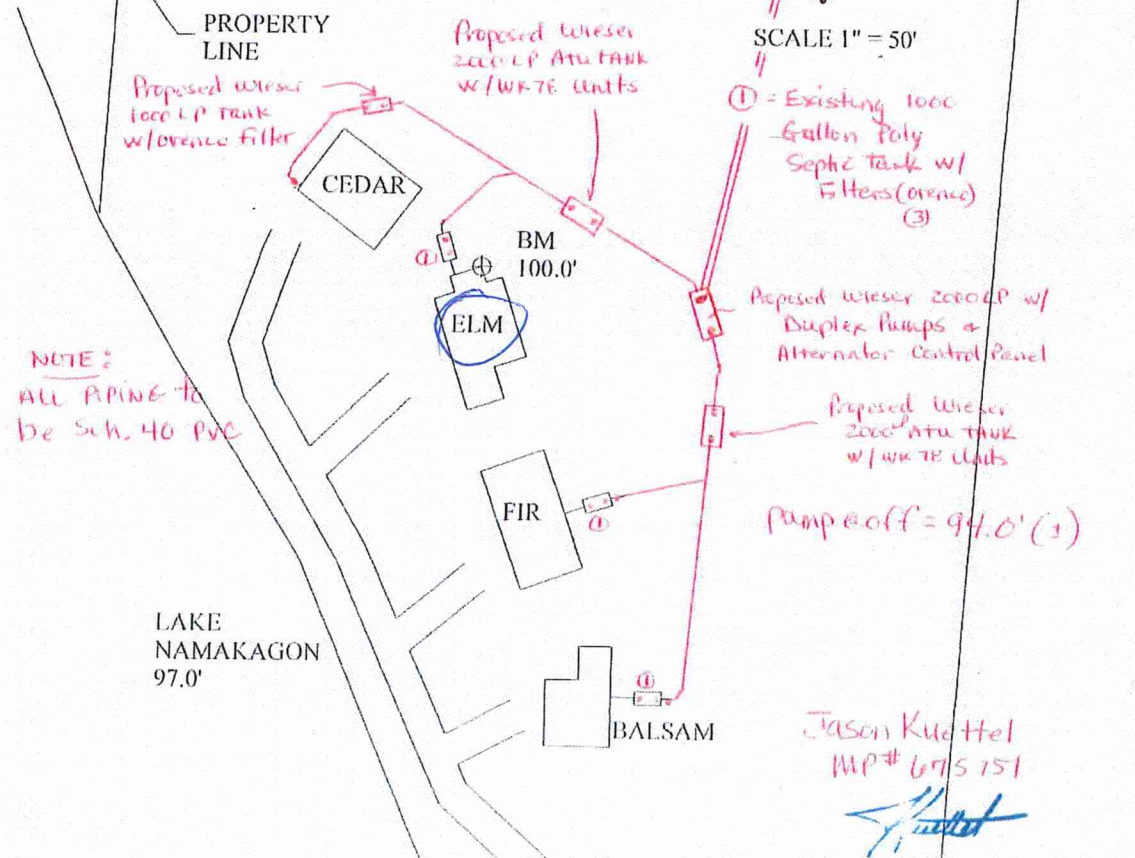 PROPERTY
LINE
Proposed Wieser
2000 LP ATU TANK
W/WK7E Units
SCALE 1" = 50'
Proposed Wieser
1000 LP Tank
w/orenco filter
① = Existing 1000
Gallon Poly
Septic Tank w/
Filters (orenco)
(3)
CEDAR
①
BM
100.0'
ELM
Proposed Wieser 2000 LP w/
Duplex Pumps &
Alternator Control Panel
NOTE:
ALL PIPING to
be Sch. 40 PVC
Proposed Wieser
2000LP ATU TANK
W/WK 7E Units
FIR
①
pump e off = 94.0' (±)
LAKE
NAMAKAGON
97.0'
①
BALSAM
Jason Kuettel
MP# 675151
Kuettel